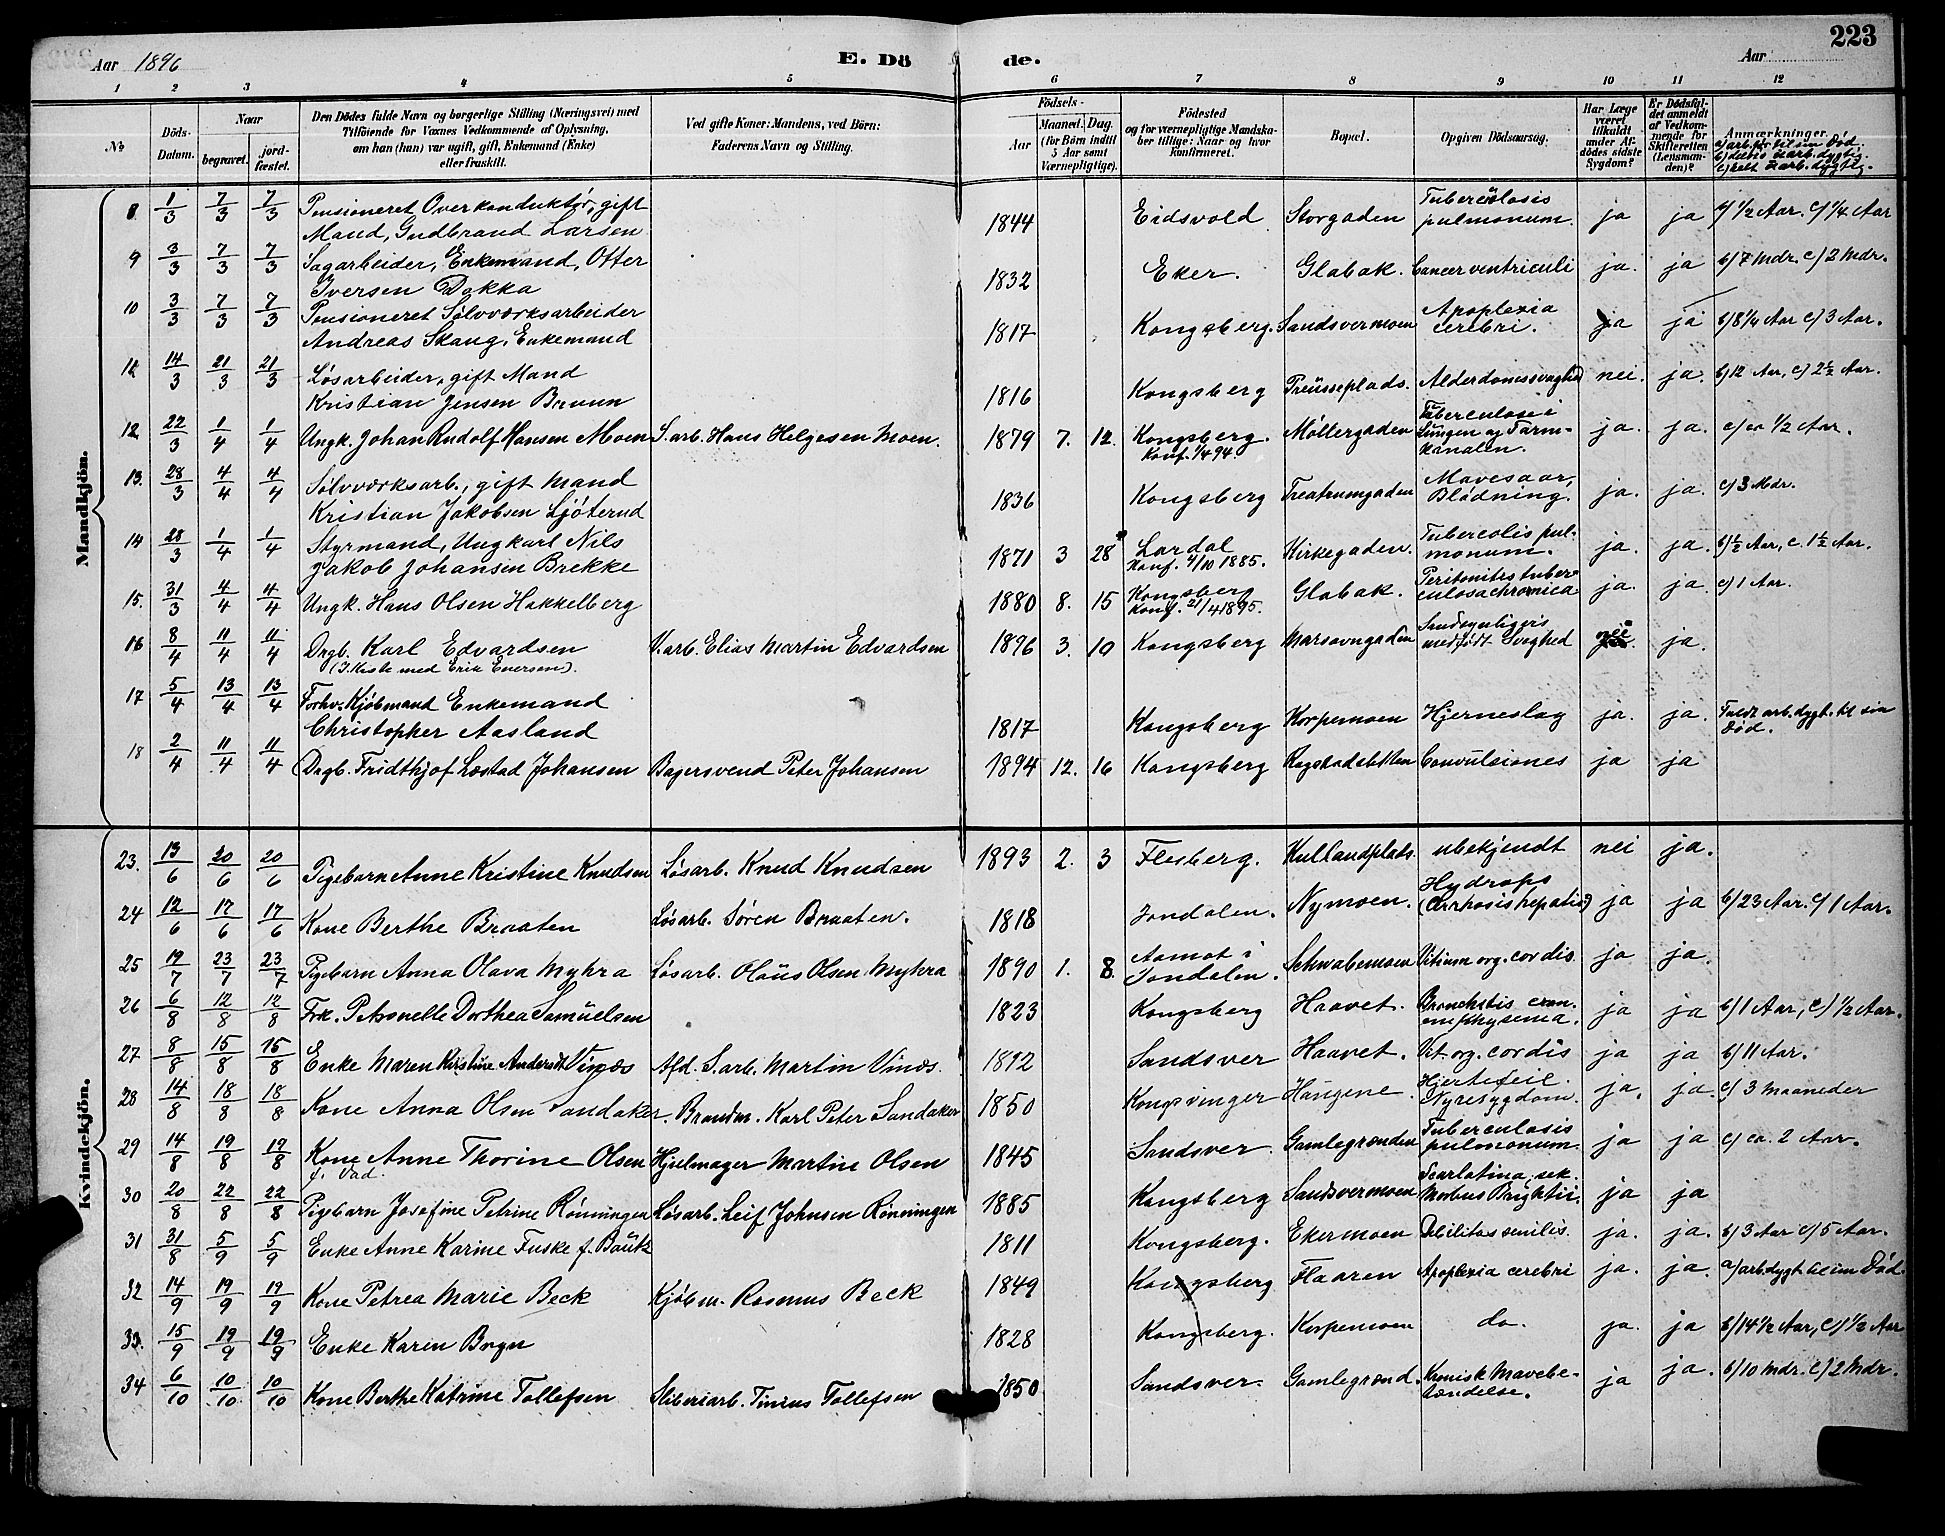 223
Aar 1896 E. Dö de. Aar
1 2 3 4 5 6 7 8 9 10 11 12
No
Döds-Datum.
Naar
begravet. jordfæstet.
Den Dödes fulde Navn og borgerlige Stilling (Næringsvei) med
Tilföiende for Voxnes Vedkommende af Oplysning,
om han (hun) var ugift, gift, Enkemand (Enke)
eller fraskilt.
Ved gifte Koner: Mandens, ved Börn:
Faderens Navn og Stilling.
Födsels-
Aar Maaned. Dag.
(for Börn indtil
5 Aar samt
Værnepligtige).
Födested
og for værnepligtige Mandskaber
tillige: Naar og hvor
konfirmeret.
Bopæl.
Opgiven Dödsaarsag.
Har Læge
været
tilkaldt
under Afdödes
sidste
Sygdom?
Er Dödsfaldet
anmeldt
af Vedkommende
for
Skifteretten
(Lensmanden)?
Anmærkninger.
a) arb.før til sin Død.
b) delvis uarb.dygtig.
c) helt uarb.dygtig.
Mandkjön.
8 1/3 7/3 7/3 Pensioneret Overkonduktør, gift Mand, Gudbrand Larsen 1844 Eidsvold Storgaden Tuberculosis pulmonum. ja ja 1/2 Aar. c) 1/4 Aar
9 3/3 7/3 7/3 Sagarbeider, Enkemand, Otter Iversen Dokka 1832 Eker. Glabak. Cancer ventriculi ja. ja b) 7 Mdr. c) 2 Mdr.
10 3/3 7/3 7/3 Pensioneret Sølvværksarbeider Andreas Skaug, Enkemand 1817 Kongsberg. Sandsvermoen Apoplexia cerebri. ja ja b) 8 1/4 Aar c) 3 Aar.
11 14/3 21/3 21/3 Løsarbeider, gift Mand Kristian Jensen Bruun 1816 Kongsberg Preusseplads. Alderdomssvaghd nei. ja. b) 12 Aar, c) 2 1/2 Aar.
12 22/3 1/4 1/4 Ungk. Johan Rudolf Hansen Moen S. arb. Hans Helgesen Moen. 1879 7. 12. Kongsberg. Konf. 1/4 94. Møllergaden Tuberculose i Lungen og Tarmkanalen. ja. ja. c) ca 1/2 Aar.
13. 28/3 4/4 4/4 Sølvværksarb., gift Mand Kristian Jakobsen Sjøterud 1836 Kongsberg Treatrumgaden Mavesaar, Blødning. ja. ja. c) 3 Mdr.
14 28/3 1/4 1/4 Styrmand, Ungkarl Nils Jakob Johansen Brekke 1871 3 28 Lardal Konf. 4/10 1885. Kirkegaden. Tubercolis pulmonum. ja. ja. b) 1/2 Aar, c. 1 1/2 Aar.
15. 31/3 4/4 4/4 Ungk. Hans Olsen Hakkelberg 1880 8. 15 Kongsberg Konf. 21/4 1895. Glabak. Peritonitis tuberculosa chronica ja. ja. c) 1 Aar.
16 8/4 11/4 11/4 Drgb. Karl Edvardsen (I Kiste med Erik Eversen). V. arb. Elias Martin Edvardsen 1896 3. 10 Kongsberg Marsovngaden Sandsynligvis medfødt Svaghed nei ja.
17 5/4 13/4 13/4 Forhv. Kjøbmand Enkemand Christopher Aasland 1817 Kongsberg Korpemoen Hjerneslag ja. ja. Fuldt arb.dygt. til sin Død.
18 2/4 11/4 11/4 Drgb. Fridthjof Løstad Johansen Bagersvend Peter Johansen 1894 12. 16 Kongsberg Convulsiones ja ja
Kvindekjön.
23. 13/6 20/6 20/6 Pigebarn Anne Kristine Knudsen Løsarb. Knud Knudsen 1893 2. 3 Flesberg. Kullandplads. ubekjendt nei ja.
24 12/6 17/6 17/6 Kone Berthe Braaten Løsarb. Søren Braaten. 1818 Jondalen. Nymoen. Hydrops (Cirrhosis hepatis) ja ja b) 23 Aar. c) 1 Aar.
25 19/7 23/7 23/7 Pigebarn Anna Olava Myhra Løsarb. Olaüs Olsen Myhra 1890 1. 8. Aamot i Jondalen. Schwabemoen Vitium org. cordis ja ja.
26 6/8 12/8 12/8 Frk. Petronelle Dorthea Samüelsen 1823 Kongsberg Haavet. Bronchitis cron. emphysema. ja ja b) 1 Aar, c) 1/2 Aar.
27 8/8 15/8 15/8 Enke Maren Kirstine Andersdt Vinæs Afd. S. arb. Martin Vinæs. 1812 Sandsver Haavet. Vit. org. cordis ja ja b) 11 Aar.
28 14/8 18/8 18/8 Kone Anna Olsen Sandaker. Brandm. Karl Peter Sandaker 1850 Kongsvinger Haugene. Hjertefeil. Nyresygdom. ja. ja. c) 3 Maaneder
29 14/8 19/8 19/8 Kone Anne Thorine Olsen f. Vad. Hjulmager Martin Olsen 1845 Sandsver. Gamlegrænden Tuberculosis pulmonum. ja ja c) ca. 2 Aar.
30 20/8 22/8 22/8 Pigebarn Josefine Petrine Rønningen Løsarb. Leif Johnsen Rønningen 1885 Kongsberg Sandsvermoen Scarlatina, sek. Morbus Brightii. ja ja
31 31/8 5/9 5/9 Enke Anne Karine Fuske f. Baütz 1811 Kongsberg. Ekermoen Debilitas senilis. ja. ja. b) 3 Aar c) 5 Aar.
32 14/9 19/9 19/9 Kone Petrea Marie Beck Kjøbm. Rasmus Beck 1849 Kongsberg Flaaren Apoplexia cerebri ja. ja. a) arb.dygt. til sin Død.
33. 15/9 19/9 19/9 Enke Karen Bryn 1828 Kongsberg. Korpemoen do. ja. ja b) 14 1/2 Aar, c) 1/2 Aar
34 6/10 10/10 10/10 Kone Berthe Katrine Tollefsen Sliberiarb. Tinius Tollefsen 1850 Sandsver. Gamlegrænd. Kronisk Mavebetændelse. ja ja. b) 10 Mdr. c) 2 Mdr.